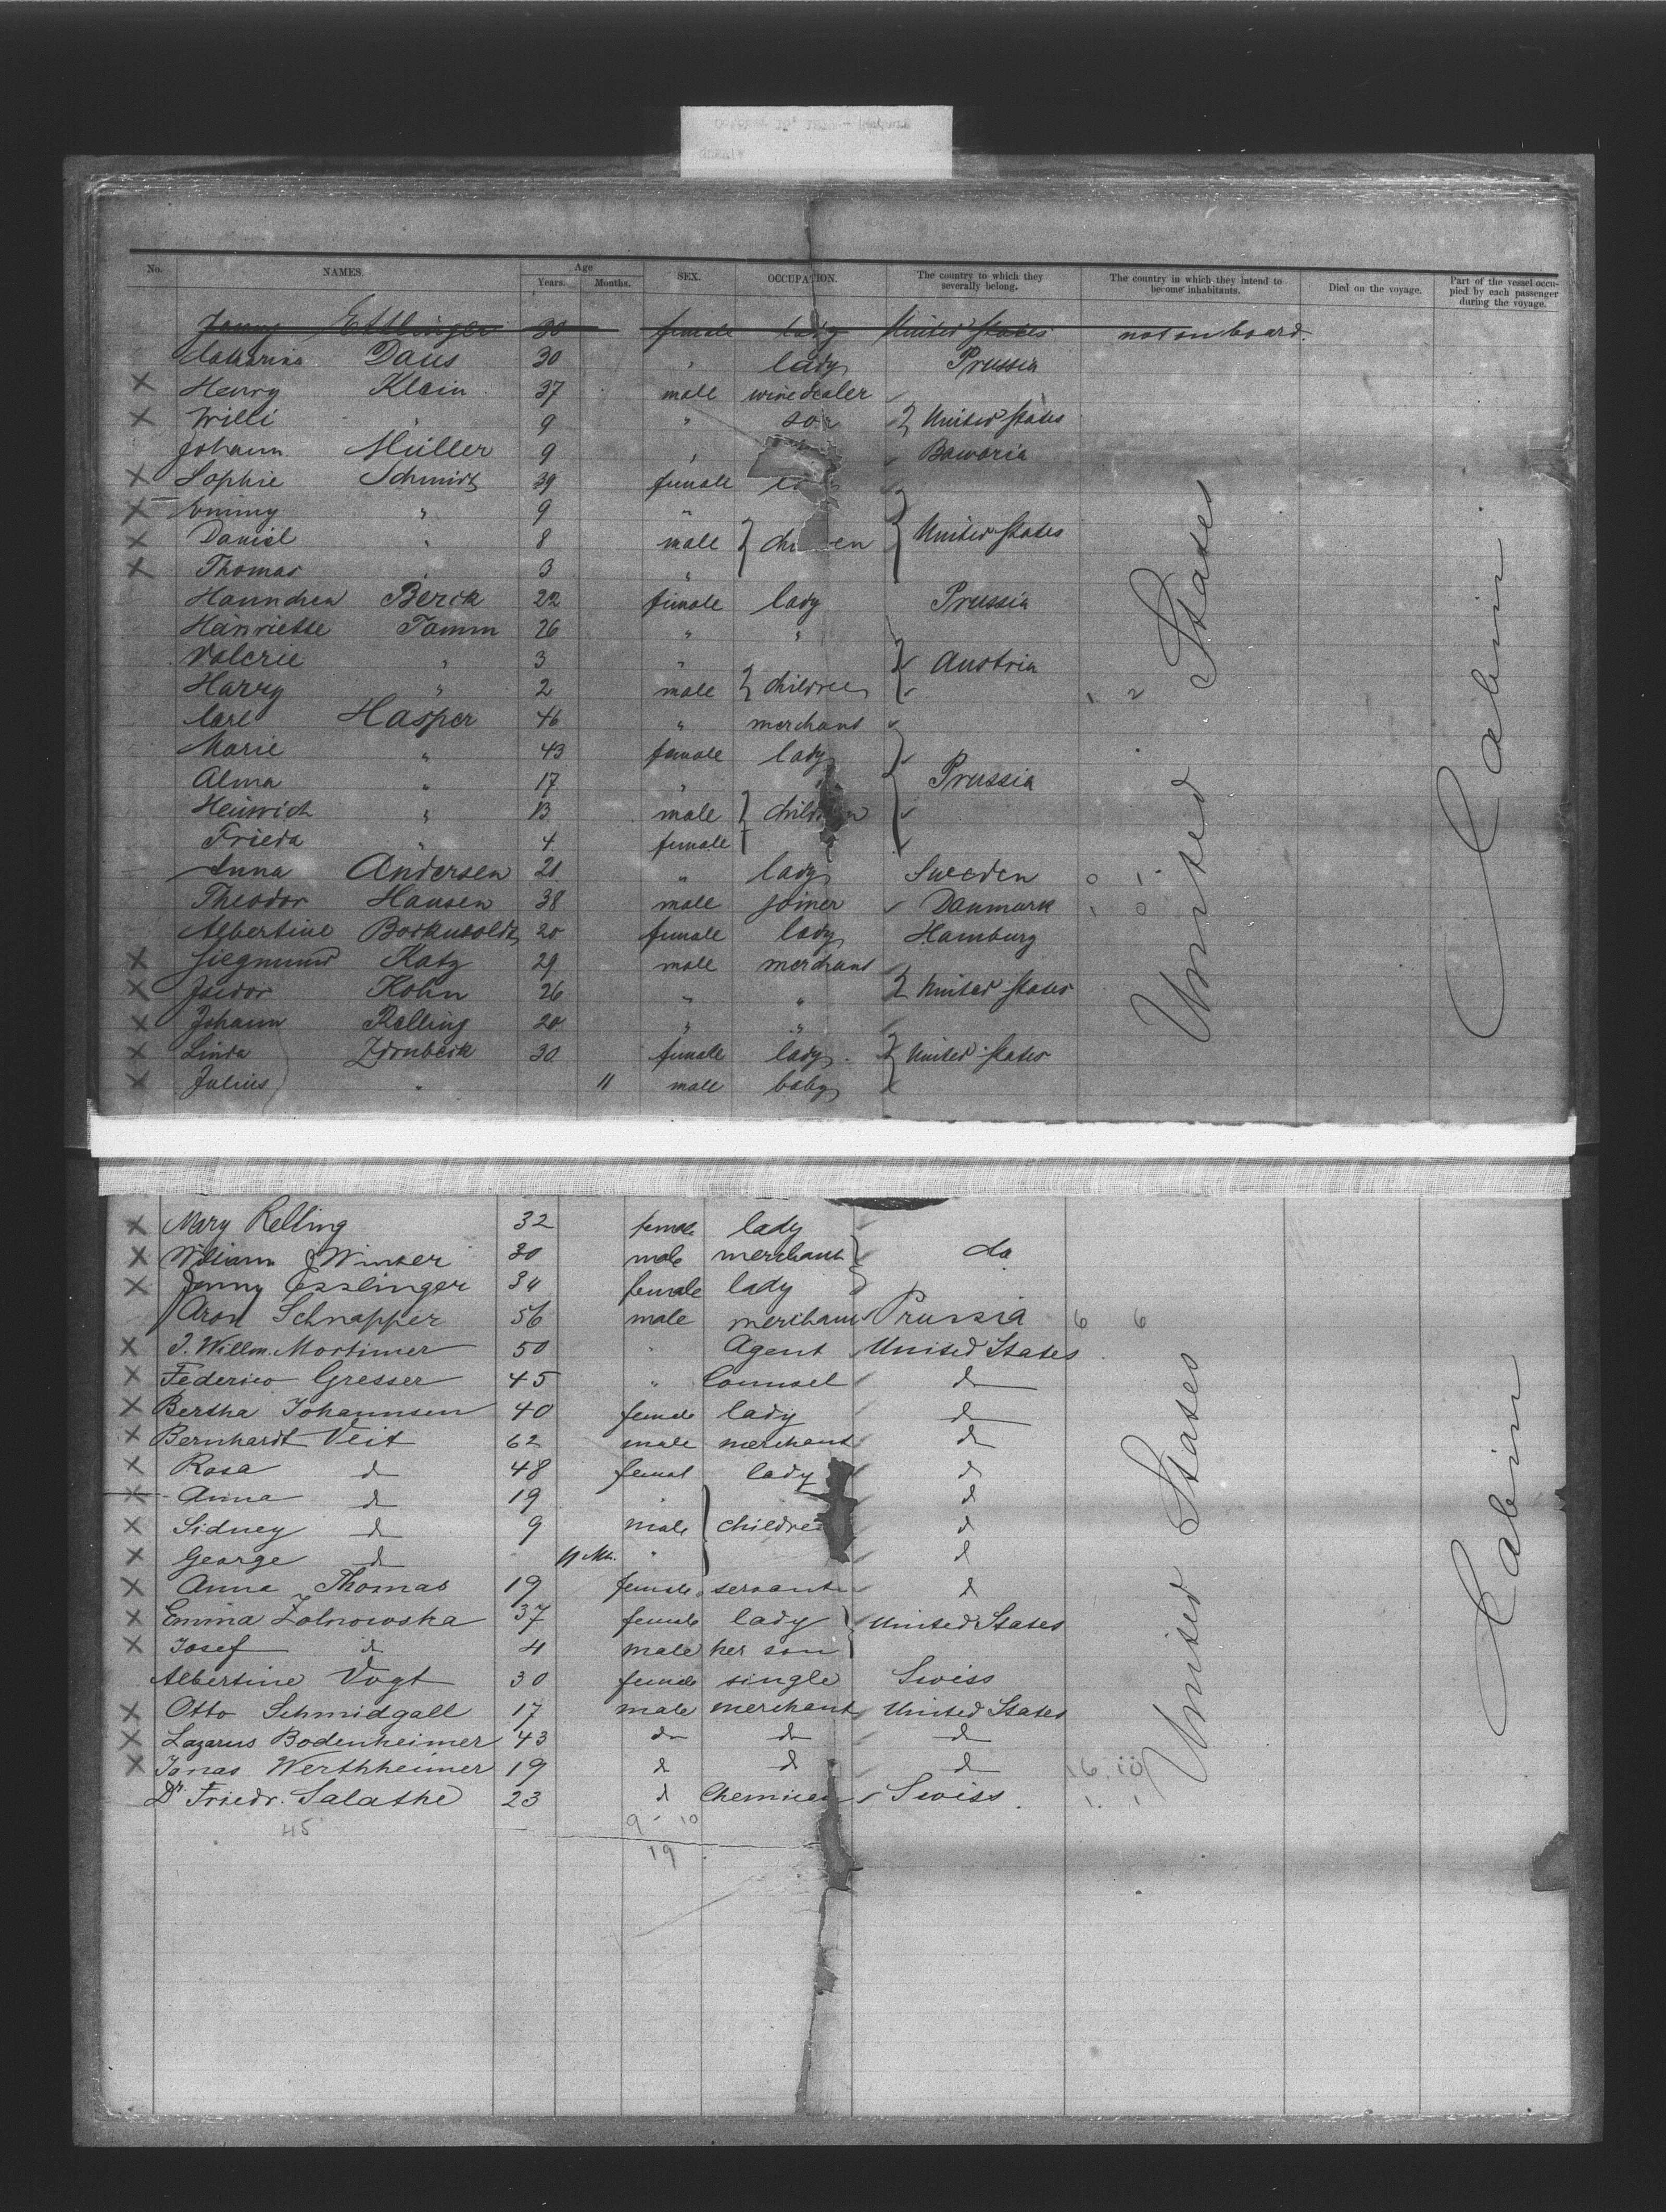 No. NAMES. Age Years. Months. SEX. OCCUPATION. The country to which they severally belong. The country in which they intend to become inhabitants. Died on the voyage. Part of the vessel occupied by each passenger during the voyage.
Jenny Ettlinger 30 female lady United States not on board.
Catharina Daus 30 " lady Prussia
X Henry Klein 37 male winedealer
X Willi " 9 " son } United States
Johann Müller 9 " Bavaria
X Sophie Schmidt 39 female
X Emmy " 9 "
X Daniel " 8 male } children } United States
X Thomas " 3 "
Hanndren Berck 22 female lady Prussia
Henriette Tamm 26 " "
Valerie " 3 " } Austria
Harry " 2 male } children 1 2
Carl Hasper 46 " merchant
Marie " 43 female lady
Alma " 17 " } Prussia
Heinrich " 13 male } children
Frieda " 4 female
Anna Andersen 21 " lady Sweden 0 1
Theodor Hansen 38 male joiner Danmark 1 0
Albertine Borknholdt 20 female lady Hamburg
X Siegmund Katz 29 male merchant
X Isidor Kohn 26 " " } United States
X Johann Relling 20 " "
X Linda Zirnbeck 30 female lady } United States
X Julius " 11 male baby
United States
Cabin
X Mary Relling 32 female lady
X William J Winter 30 male merchant } do
X Jenny Esslinger 34 female lady
Aron Schnapper 56 male merchant Prussia 6 6
X J. Willm. Mortimer 50 " Agent United States
X Federico Gresser 45 " Counsel d
X Bertha Johannsen 40 female lady d
X Bernhardt Veit 62 male merchant d
X Rosa d 48 femal lady d
X Anna d 19 " d
X Sidney d 9 male } children d
X George d 11 Mh. " d
X Anna Thomas 19 female servant d
X Emma Zolnowska 37 female lady } United States
X Josef d 4 male her son
Albertine Vogt 30 female single Swiss
X Otto Schmidgall 17 male merchant United States
X Lazarus Bodenheimer 43 do d d
X Jonas Werthheimer 19 d d d 16. 10
Dr. Friedr. Salathe 23 d Chemican Swiss 1. 1
45 9 - 10
19
United States
Cabin